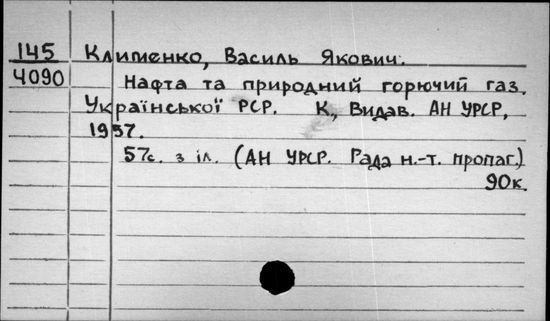 145 Клименко, Василь Якович.
4090 Нафта та природний горючий газ.
Української РСР. К., Видав. АН УРСР,
1957.
57с. з іл. (АН УРСР. Рада н.-т. пропаг.)
90к.